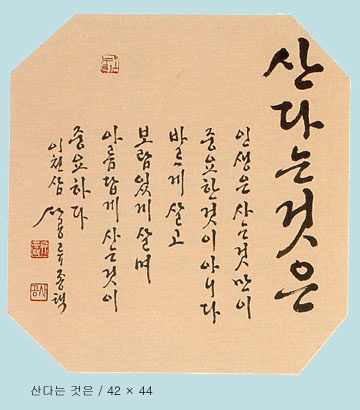 산다는것은
인생은 사는것만이
중요한것이아니다
바르게 살고
보람있게 살며
아름답게 사는것이
중요하다
이천삼 류종택
산다는 것은 / 42 × 44